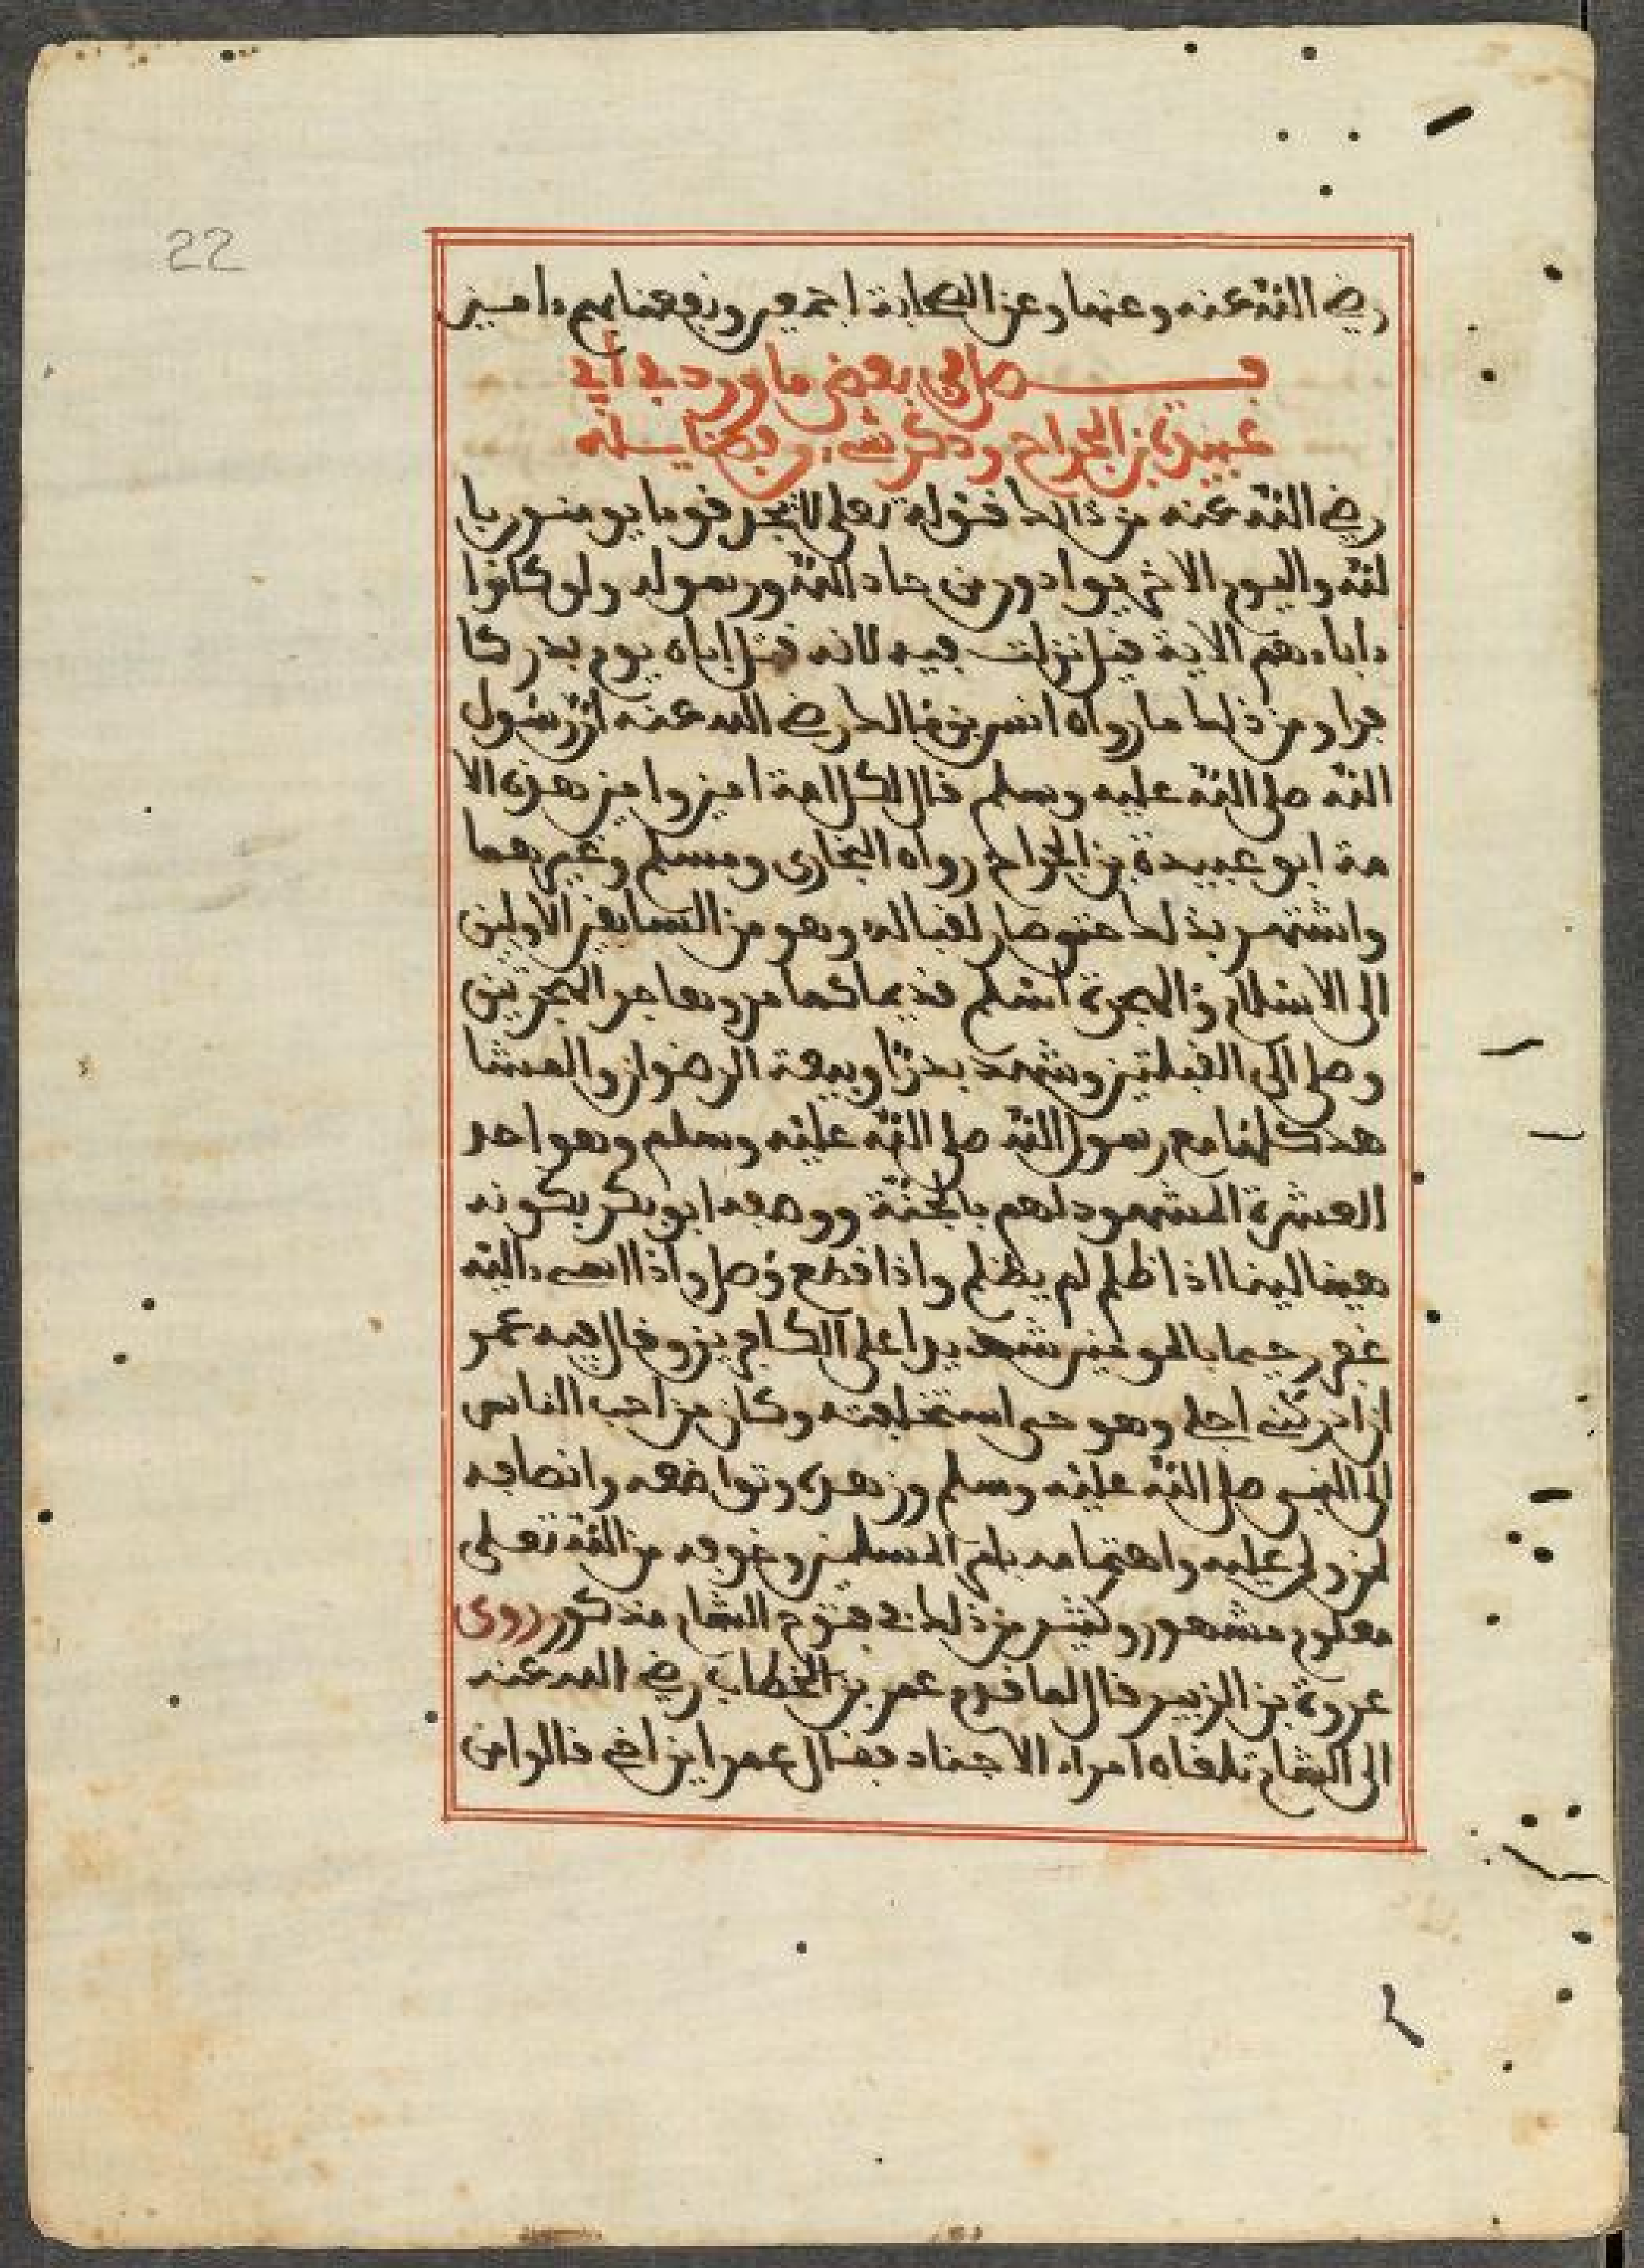 22
رضي الله عنه وعنها وعن الصحابة اجمعين ونفعنا بهم ءامين
فصل في بعض ما ورد في أبي
عبيدة بن الجراح وذكر شيء من فضايله
رضي الله عنه من ذالك قوله تعلى لا تجد قوما يومنون با
لله واليوم الاخر يوادون من حاد الله ورسوله ولو كانوا
ءاباءهم الاية قيل نزلت فيه لانه قتل اباه يوم بدر كا
فرا ومن ذلك ما رواه انس بن مالك رضي الله عنه ان رسول
الله صلى الله عليه وسلم قال لكل امة امين وامين هذه الا
مة ابو عبيدة بن الجراح رواه البخاري ومسلم وغيرهما
واشتهر بذلك حتى صار لقبا له وهو من السابقين الاولين
الى الاسلام والهجرة اسلم قديما كما مر وهاجر الهجرتين
وصلى الى القبلتين وشهد بدرا وبيعة الرضوان والمشا
هد كلها مع رسول الله صلى الله عليه وسلم وهو احد
العشرة المشهود لهم بالجنة ووصفه ابو بكر بكونه
هينا لينا اذا ظلم لم يظلم واذا قطع وصل واذا اسيء اليه
غفر رحيما بالمومنين شديدا على الكافرين وقال فيه عمر
ان ادركني اجلي وهو حي استخلفته وكان من احب الناس
الى النبي صلى الله عليه وسلم وزهده وتواضعه وانصافه
لمن ولي عليه واهتمامه بامر المسلمين وخوفه من الله تعلى
معلوم مشهور وكثير من ذلك في فتوح الشام مذكور روى
عروة بن الزبير قال لما قدم عمر بن الخطاب رضي الله عنه
الى الشام تلقاه امراء الاجناد فقال عمر اين اخي قالوا من